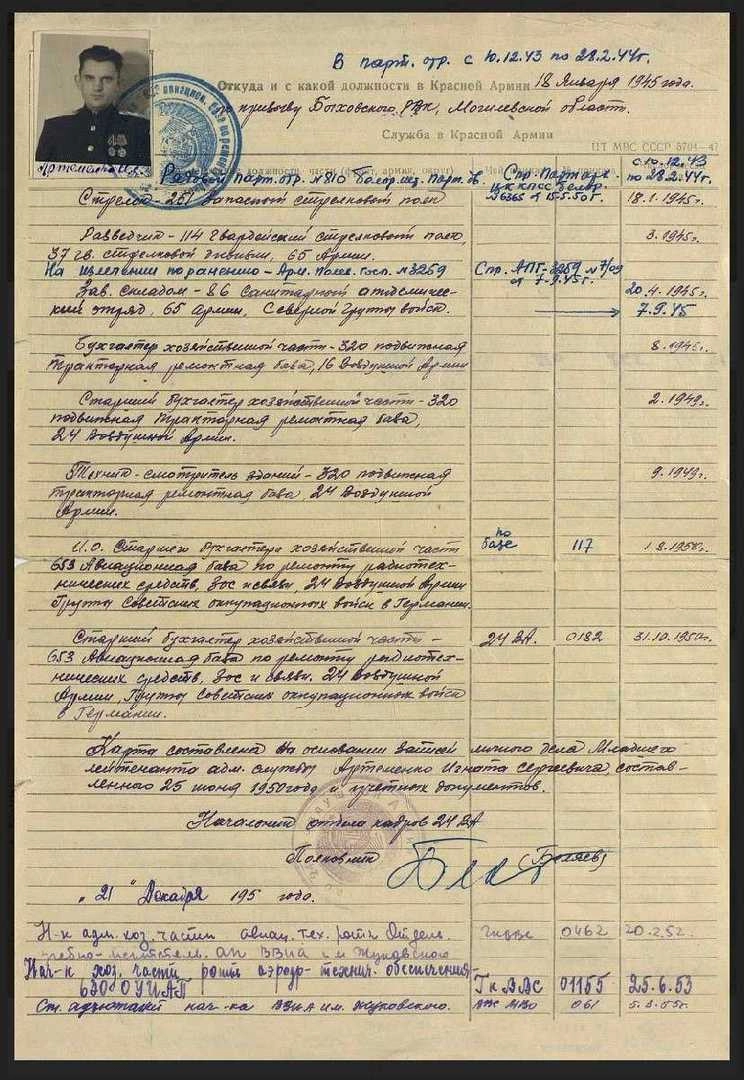 В парт. отр. с 10.12.43 по 28.2.44г.
Откуда и с какой должности в Красной Армии 18 Января 1945 года.
по призыву Быховского РВК, Могилевской области.
Служба в Красной Армии
ЦТ МВС СССР 5704—47
Артеменко И.С.
Рядовой Парт. отр. № 810
Спр. Партарх. с 10.12.43
ЦК КПСС Белор. по 28.2.44г.
№ 6365 от 15.5.50г.
Стрелок - 261 Запасной стрелковый полк 18.1.-1945г.
Разведчик - 114 Гвардейский стрелковый полк, 3.1945г.
37 гв. стрелковой дивизии, 65 Армии.
На излечении по ранению - Арм. Полев. госп. № 3259 Спр. АПГ-3259 № 7/09
от 7-9.45г.
Зав. складом - 86 Санитарный отряд, 65 Армии, Северной Группы войск. 20.4.1945г.
7.9.45
Бухгалтер хозяйственной части - 320 подвижная 8.1945г.
тракторная ремонтная база, 16 Воздушной Армии
Старший бухгалтер хозяйственной части - 320 2.1949г.
подвижная тракторная ремонтная база,
24 Воздушной Армии.
Техник - смотритель зданий - 320 подвижная 9.1949г.
тракторная ремонтная база, 24 Воздушной
Армии.
И.О. Старшего бухгалтера хозяйственной части по базе 117 1950г.
653 Авиационная база по ремонту радиотех-
нических средств, Зос и связи, 24 Воздушной Армии
Группы Советских оккупационных войск в Германии.
Старший бухгалтер хозяйственной части - 24 ВА. 0182 31.10.1950г.
653 Авиационная база по ремонту радиотех-
нических средств, Зос и связи, 24 Воздушной
Армии, Группы Советских оккупационных войск
в Германии.
Карта составлена на основании записей личного дела Младшего
лейтенанта адм. службы Артеменко Игната Сергеевича, состав-
ленного 25 июня 1950 году и учетных документов.
Начальник отдела кадров 24 ВА
Полковник (Беляев)
„21" Декабря 195 года.
Н-к адм. хоз. части авиац. тех. роты Отдель. 0462 20.2.52.
учебно- АП ВВИА им Жуковского
Нач-к хоз. части роты аэродр- технич. обеспечения- Гк ВВС 01155 25.6.53
УИАП
Ст. адъютант нач-ка ВВИА им. Жуковского. ВВС МВО 061 55г.